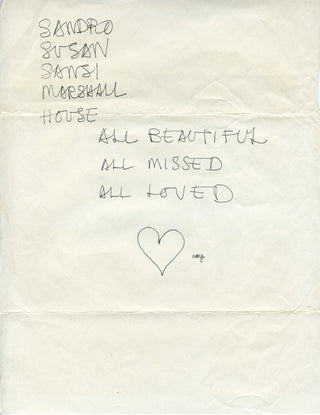 SANDRO
SUSAN
SANSI
MARSHALL
HOUSE
ALL BEAUTIFUL
ALL MISSED
ALL LOVED